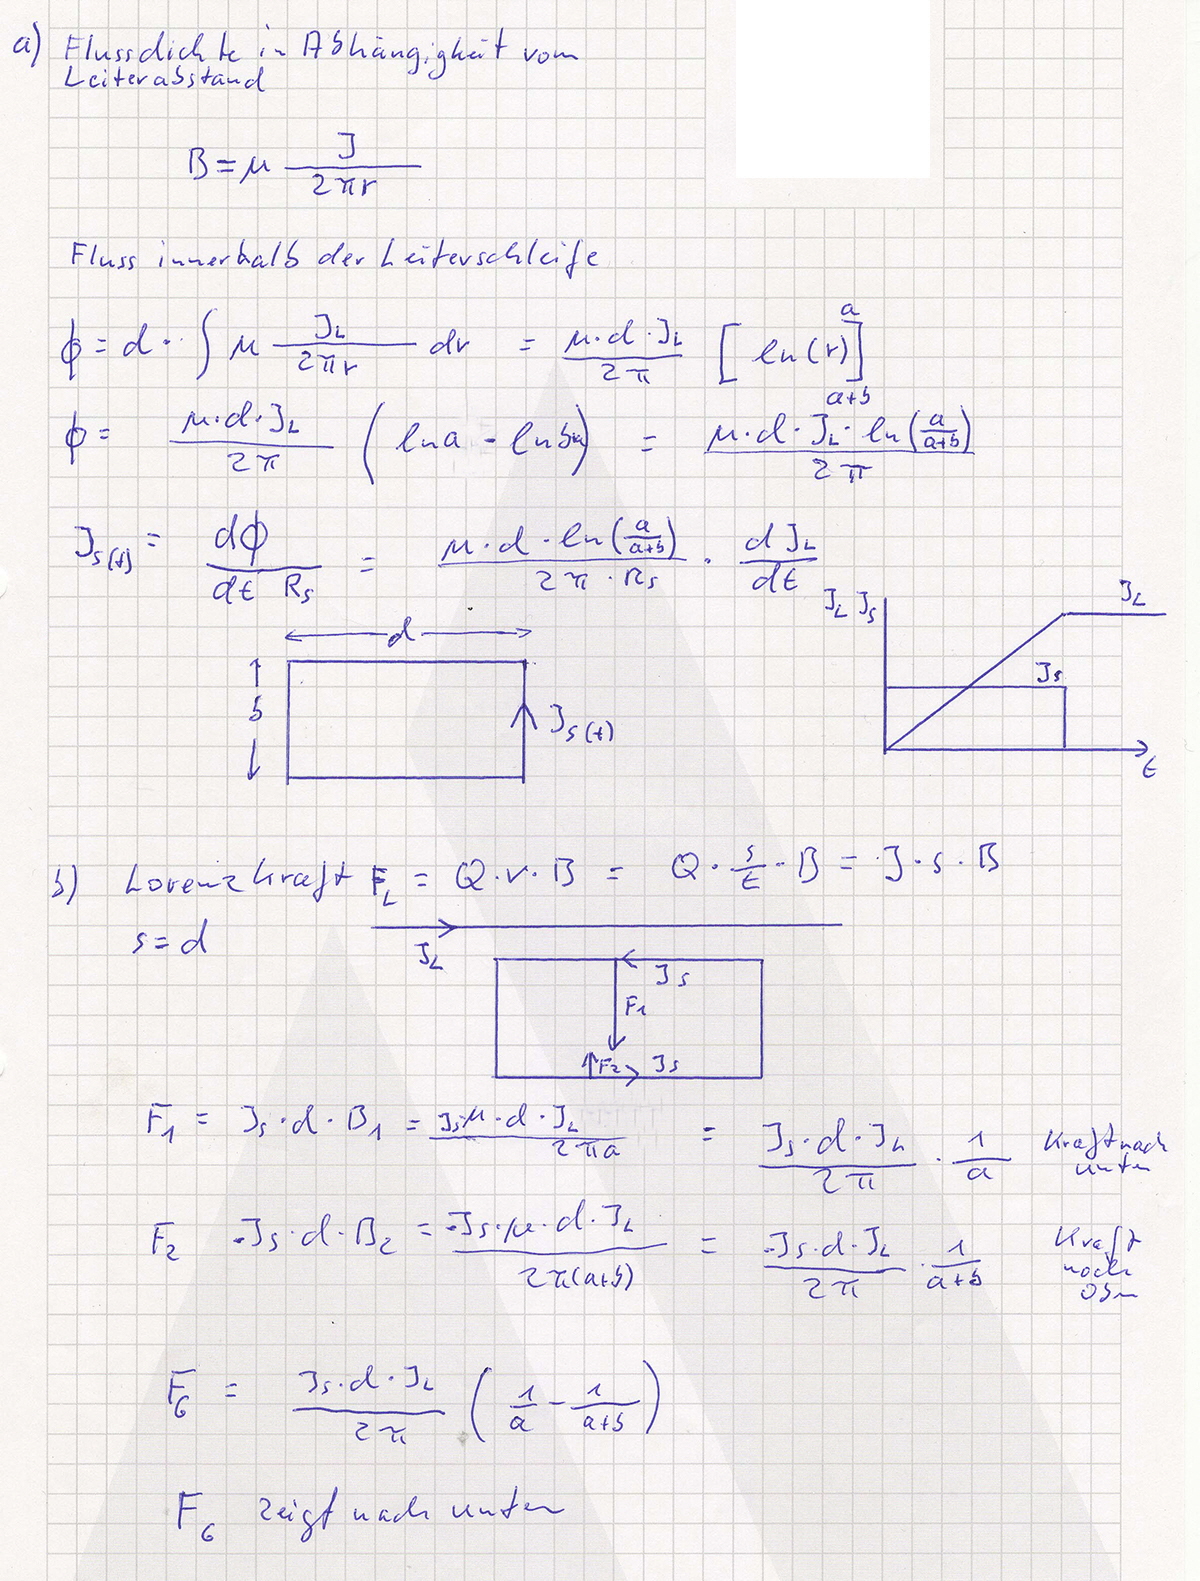 a) Flussdichte in Abhängigkeit vom
Leiterabstand
B = μ J / 2πr
Fluss innerhalb der Leiterschleife
ϕ = d · ∫ μ J_L / 2πr dr = μ·d·J_L / 2π [ ln(r) ] a a+b
ϕ = μ·d·J_L / 2π ( ln a - ln b+a ) = μ·d·J_L·ln(a/a+b) / 2π
J_s(t) = dϕ / dt R_s = μ·d·ln(a/a+b) / 2π·R_s · d J_L / dt
d
b
J_s(t)
J_L J_s
J_L
J_s
t
b) Lorenzkraft F_L = Q·v·B = Q·s/t·B = J·s·B
s = d
J_L
J_s
F_1
F_2
J_s
F_1 = J_s·d·B_1 = J_s μ·d·J_L / 2πa = J_s·d·J_L / 2π · 1/a Kraft nach
unten
F_2 -J_s·d·B_2 = -J_s·μ·d·J_L / 2π(a+b) = -J_s·d·J_L / 2π · 1/a+b Kraft
nach
Obn
F_G = J_s·d·J_L / 2π ( 1/a - 1/a+b )
F_G zeigt nach unten